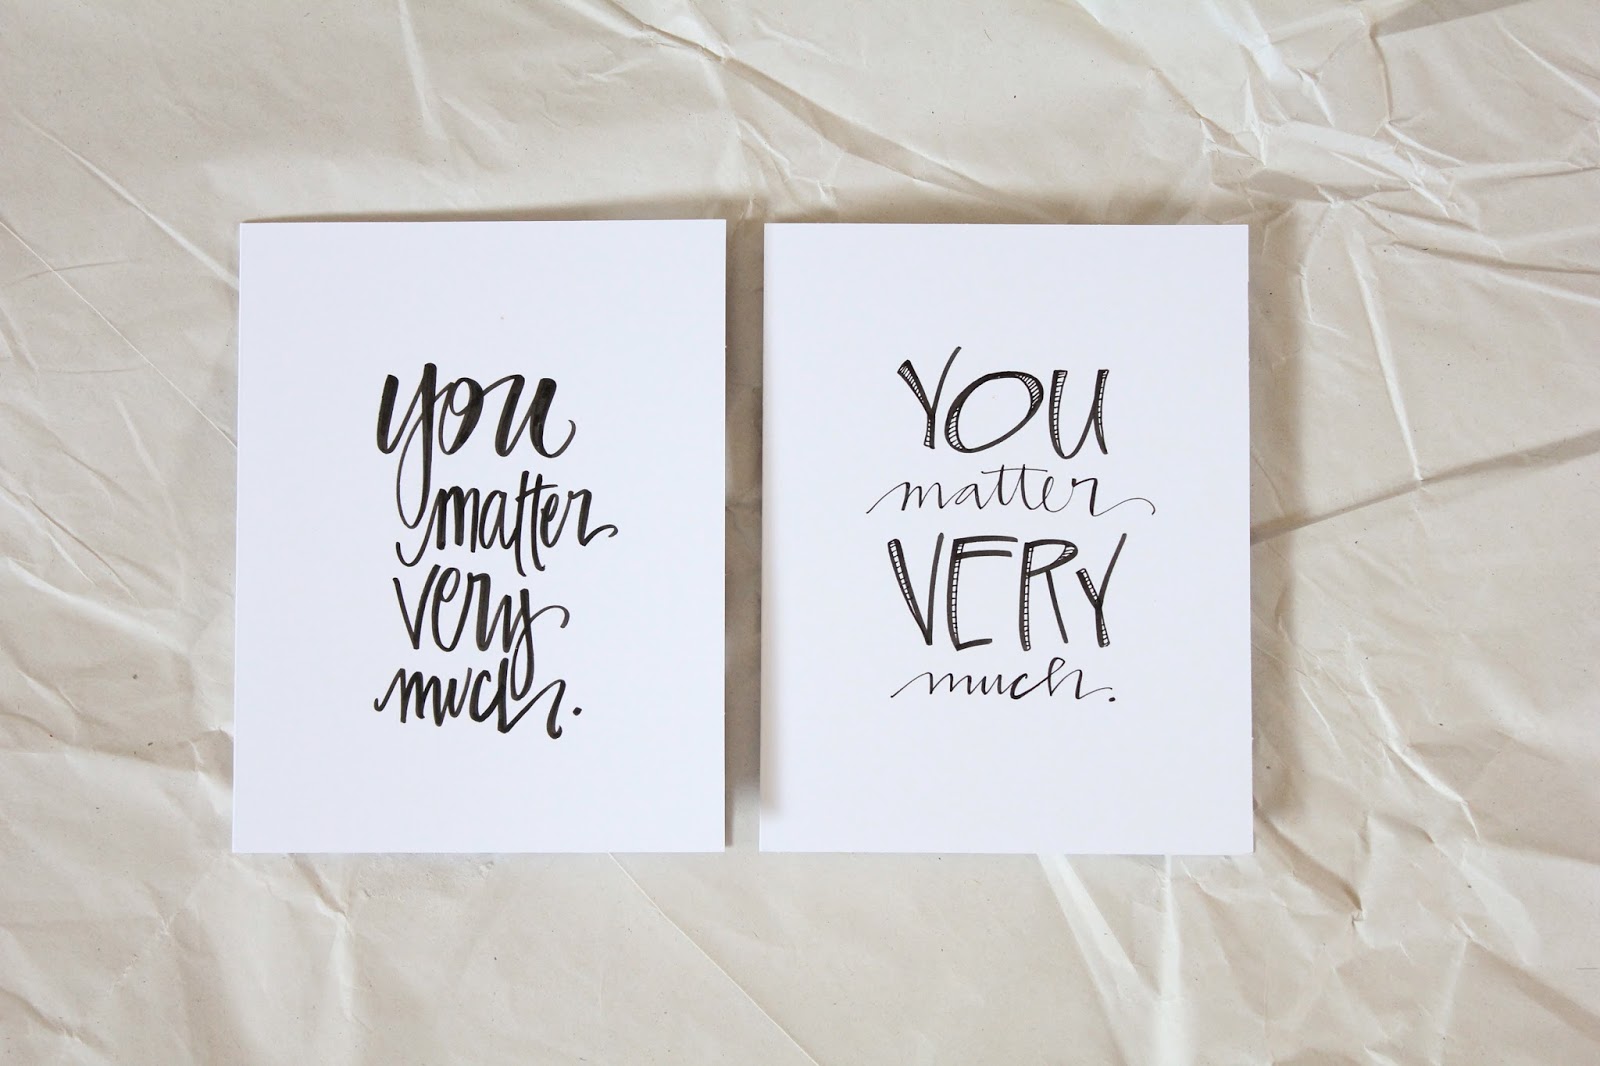 you
matter
very
much.
YOU
matter
VERY
much.